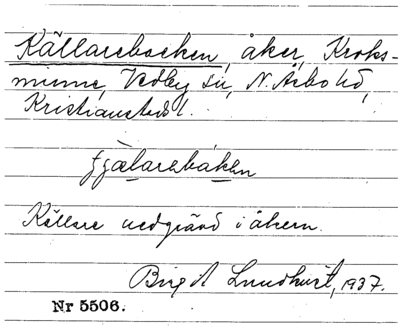 Källarebacken, åker, Kroks-
minne, Vedby sn, N. Åsbo hd,
Kristianstads l.
Källare nedgrävd i åkern.
Birgit Lundkvist, 1937.
Nr 5506.